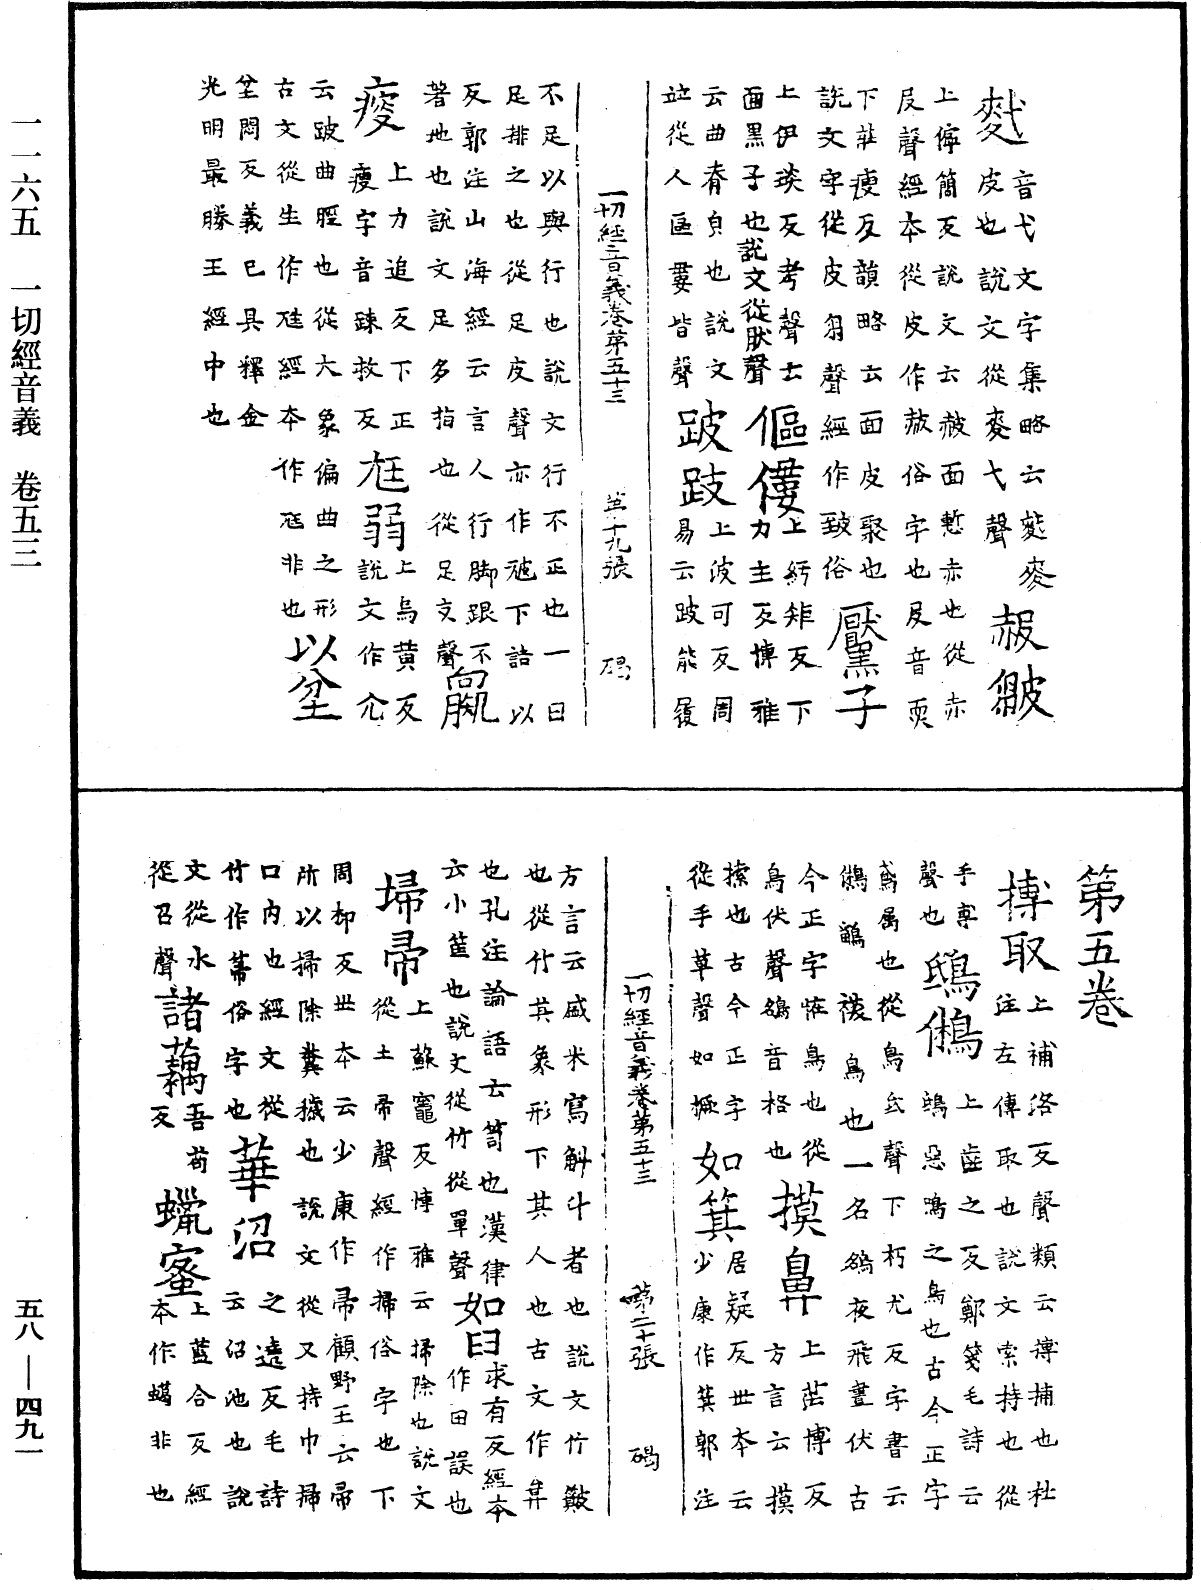 一一六五　一切經音義　卷五三
五八—四九一
麰皮也說文從麥弋聲
音弋文字集略云麧麥
赧皺
上儜簡反說文云赧面慙赤也從赤
𠬝聲經本從皮作赧俗字也𠬝音耎
下莊瘦反韻略云面皮聚也
說文字從皮芻聲經作皺俗
黶子
上伊琰反考聲士
面黑子也說文從猒聲
傴僂
上紆矩反下
力主反博雅
云曲脊皃也說文
竝從人區婁皆聲
跛跂
上波可反周
易云跛能履
一切經音義卷第五十三　第十九張　碣
不足以與行也說文行不正也一曰
足排之也從足皮聲亦作𤿑下詰以
反郭注山海經云言人行脚跟不
著地也說文足多指也從足支聲
羸
瘦
上力追反下正
瘦字音踈救反
尫弱
上烏黃反
說文作尢
云跛曲脛也從大象偏曲之形
古文從㞷作尪經本作尫非也
以坌
坌悶反義已具釋金
光明最勝王經中也
第五卷
摶取
上補洛反聲類云摶捕也杜
注左傳取也說文索持也從
手尃
聲也
鵄鵂
上齒之反鄭箋毛詩云
鴟惡鳴之鳥也古今正字
鳶屬也從鳥氐聲下朽尤反字書云
鵂鶹襛鳥也一名鵅夜飛晝伏古
今正字恠鳥也從
鳥伏聲鵅音格也
摸鼻
上莽博反
方言云摸
㩹也古今正字
從手草聲如橛
如箕
居疑反世本云
少康作箕郭注
一切經音義卷第五十三　第二十張　碣
方言云盛米寫斛斗者也說文竹簸
也從竹𠀠象形下其人也古文作𠀠
也孔注論語云笥也漢律
云小筐也說文從竹從單聲
如臼
求有反經本
作田誤也
埽帚
上蘇竈反博雅云掃除也說文
從土帚聲經作掃俗字也下
周柳反世本云少康作帚顧野王云帚
所以掃除糞穢也說文從又持巾掃
口內也經文從
竹作箒俗字也
華沼
之遶反毛詩
云沼池也說
文從水
從召聲
諸藕
吾苟
反
蠟蜜
上藍合反經
本作䗶非也